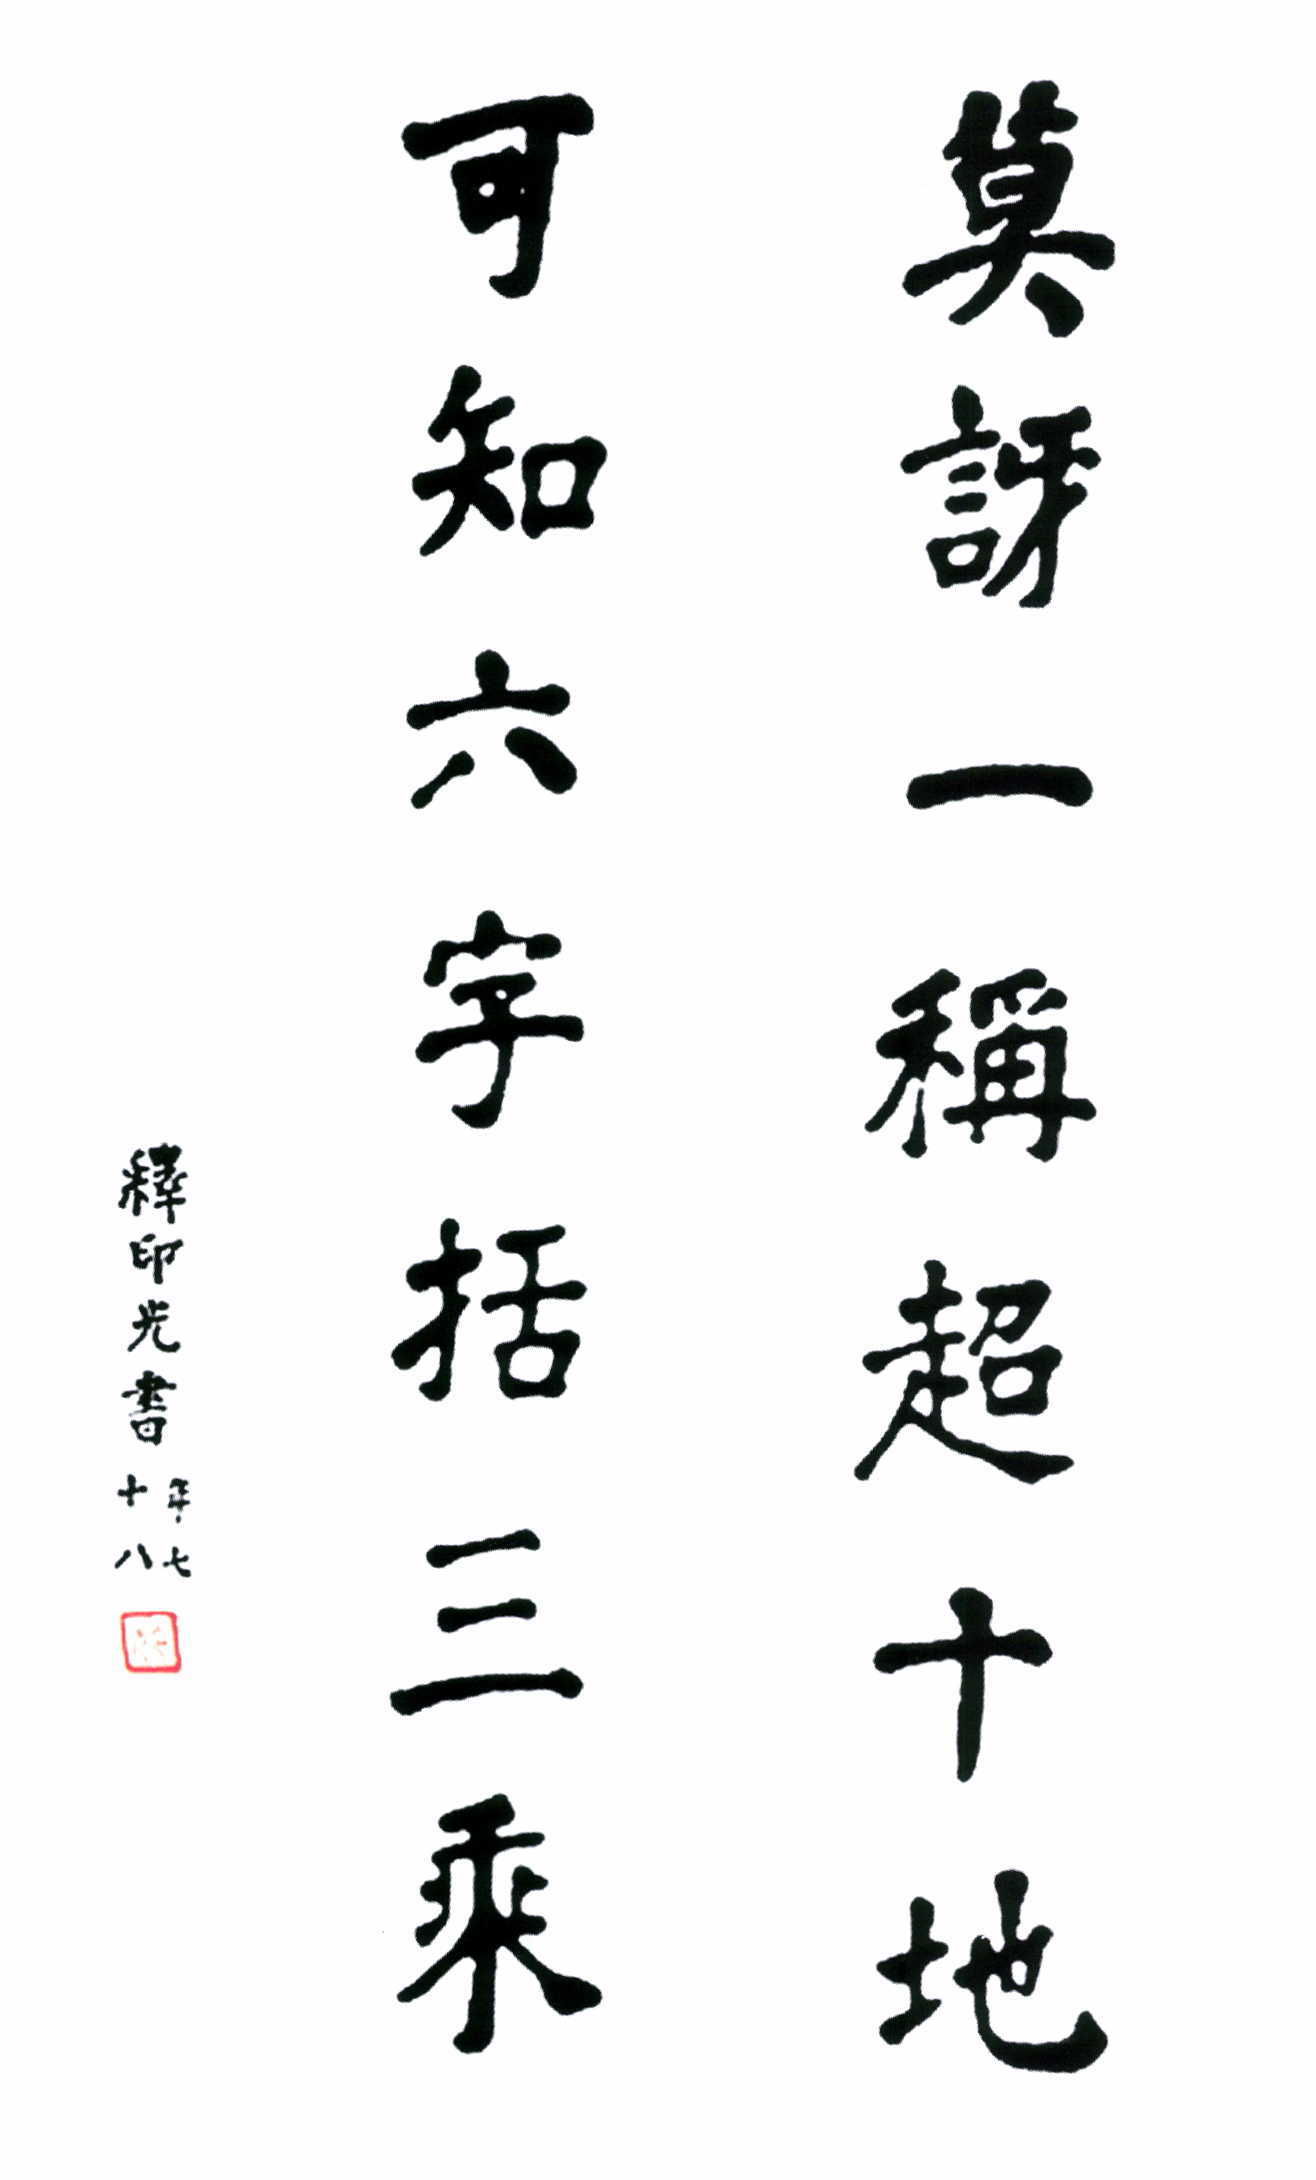 莫訝一稱超十地
可知六字括三乘
釋印光書
年七
十八